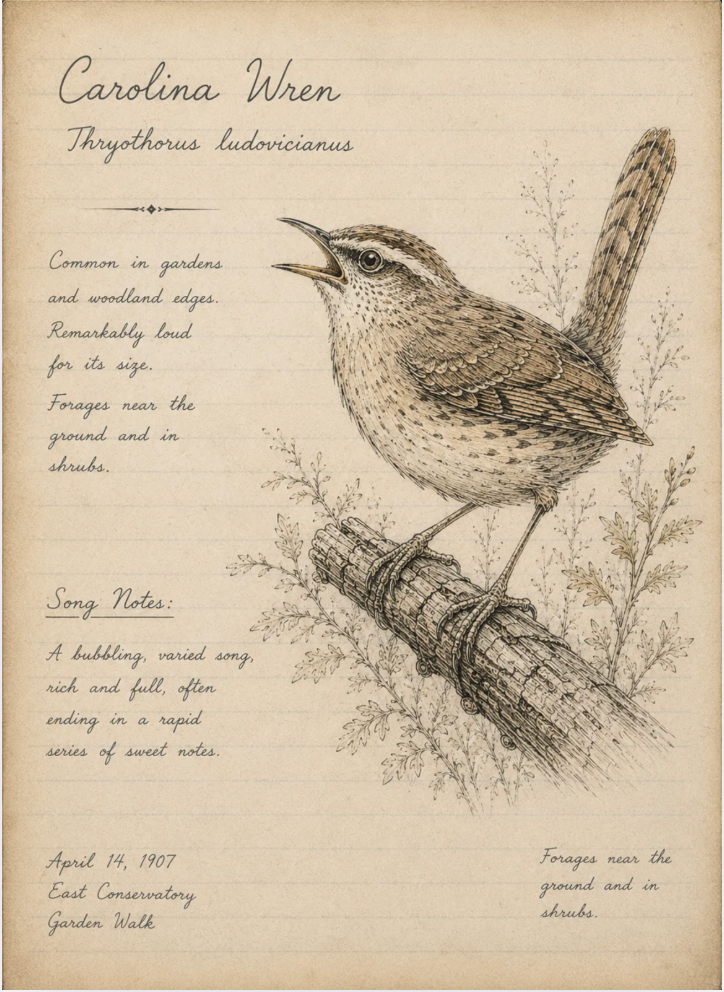 Carolina Wren
Thryothorus ludovicianus
Common in gardens
and woodland edges.
Remarkably loud
for its size.
Forages near the
ground and in
shrubs.
Song Notes:
A bubbling, varied song,
rich and full, often
ending in a rapid
series of sweet notes.
April 14, 1907
East Conservatory
Garden Walk
Forages near the
ground and in
shrubs.